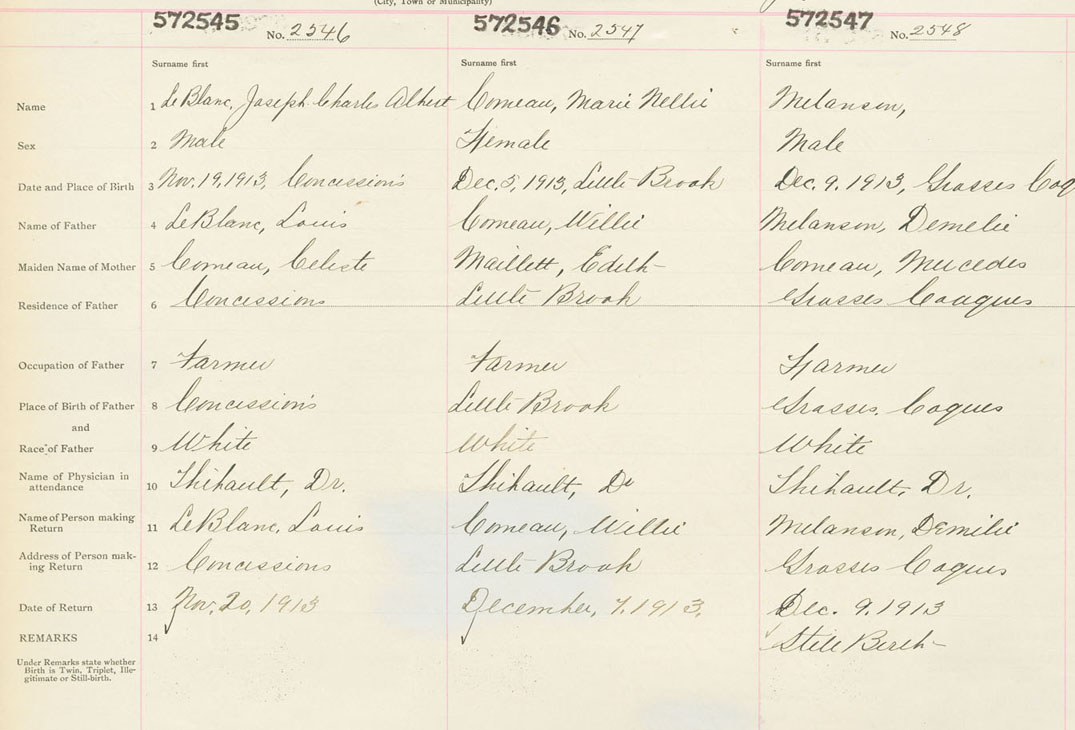 (City, Town or Municipality)
572545 No. 2546 572546 No. 2547 572547 No. 2548
Surname first Surname first Surname first
Name 1 LeBlanc, Joseph Charles Albert Comeau, Marie Nellie Melanson,
Sex 2 Male Female Male
Date and Place of Birth 3 Nov. 19, 1913, Concessions Dec. 5, 1913, Little Brook Dec. 9. 1913, Grosses Coq
Name of Father 4 LeBlanc, Louis Comeau, Willie Melanson, Demelie
Maiden Name of Mother 5 Comeau, Celeste Maillett, Edith Comeau, Mercedes
Residence of Father 6 Concessions Little Brook Grosses Coques
Occupation of Father 7 Farmer Farmer Farmer
Place of Birth of Father 8 Concessions Little Brook Grosses Coques
and
Race of Father 9 White White White
Name of Physician in
attendance 10 Thibault, Dr. Thibault, Dr Thibault, Dr.
Name of Person making
Return 11 LeBlanc, Louis Comeau, Willie Melanson, Demilie
Address of Person mak-
ing Return 12 Concessions Little Brook Grosses Coques
Date of Return 13 Nov. 20, 1913 December, 7. 1913. Dec. 9. 1913
REMARKS 14 Still Birth
Under Remarks state whether
Birth is Twin, Triplet, Ille-
gitimate or Still-birth.